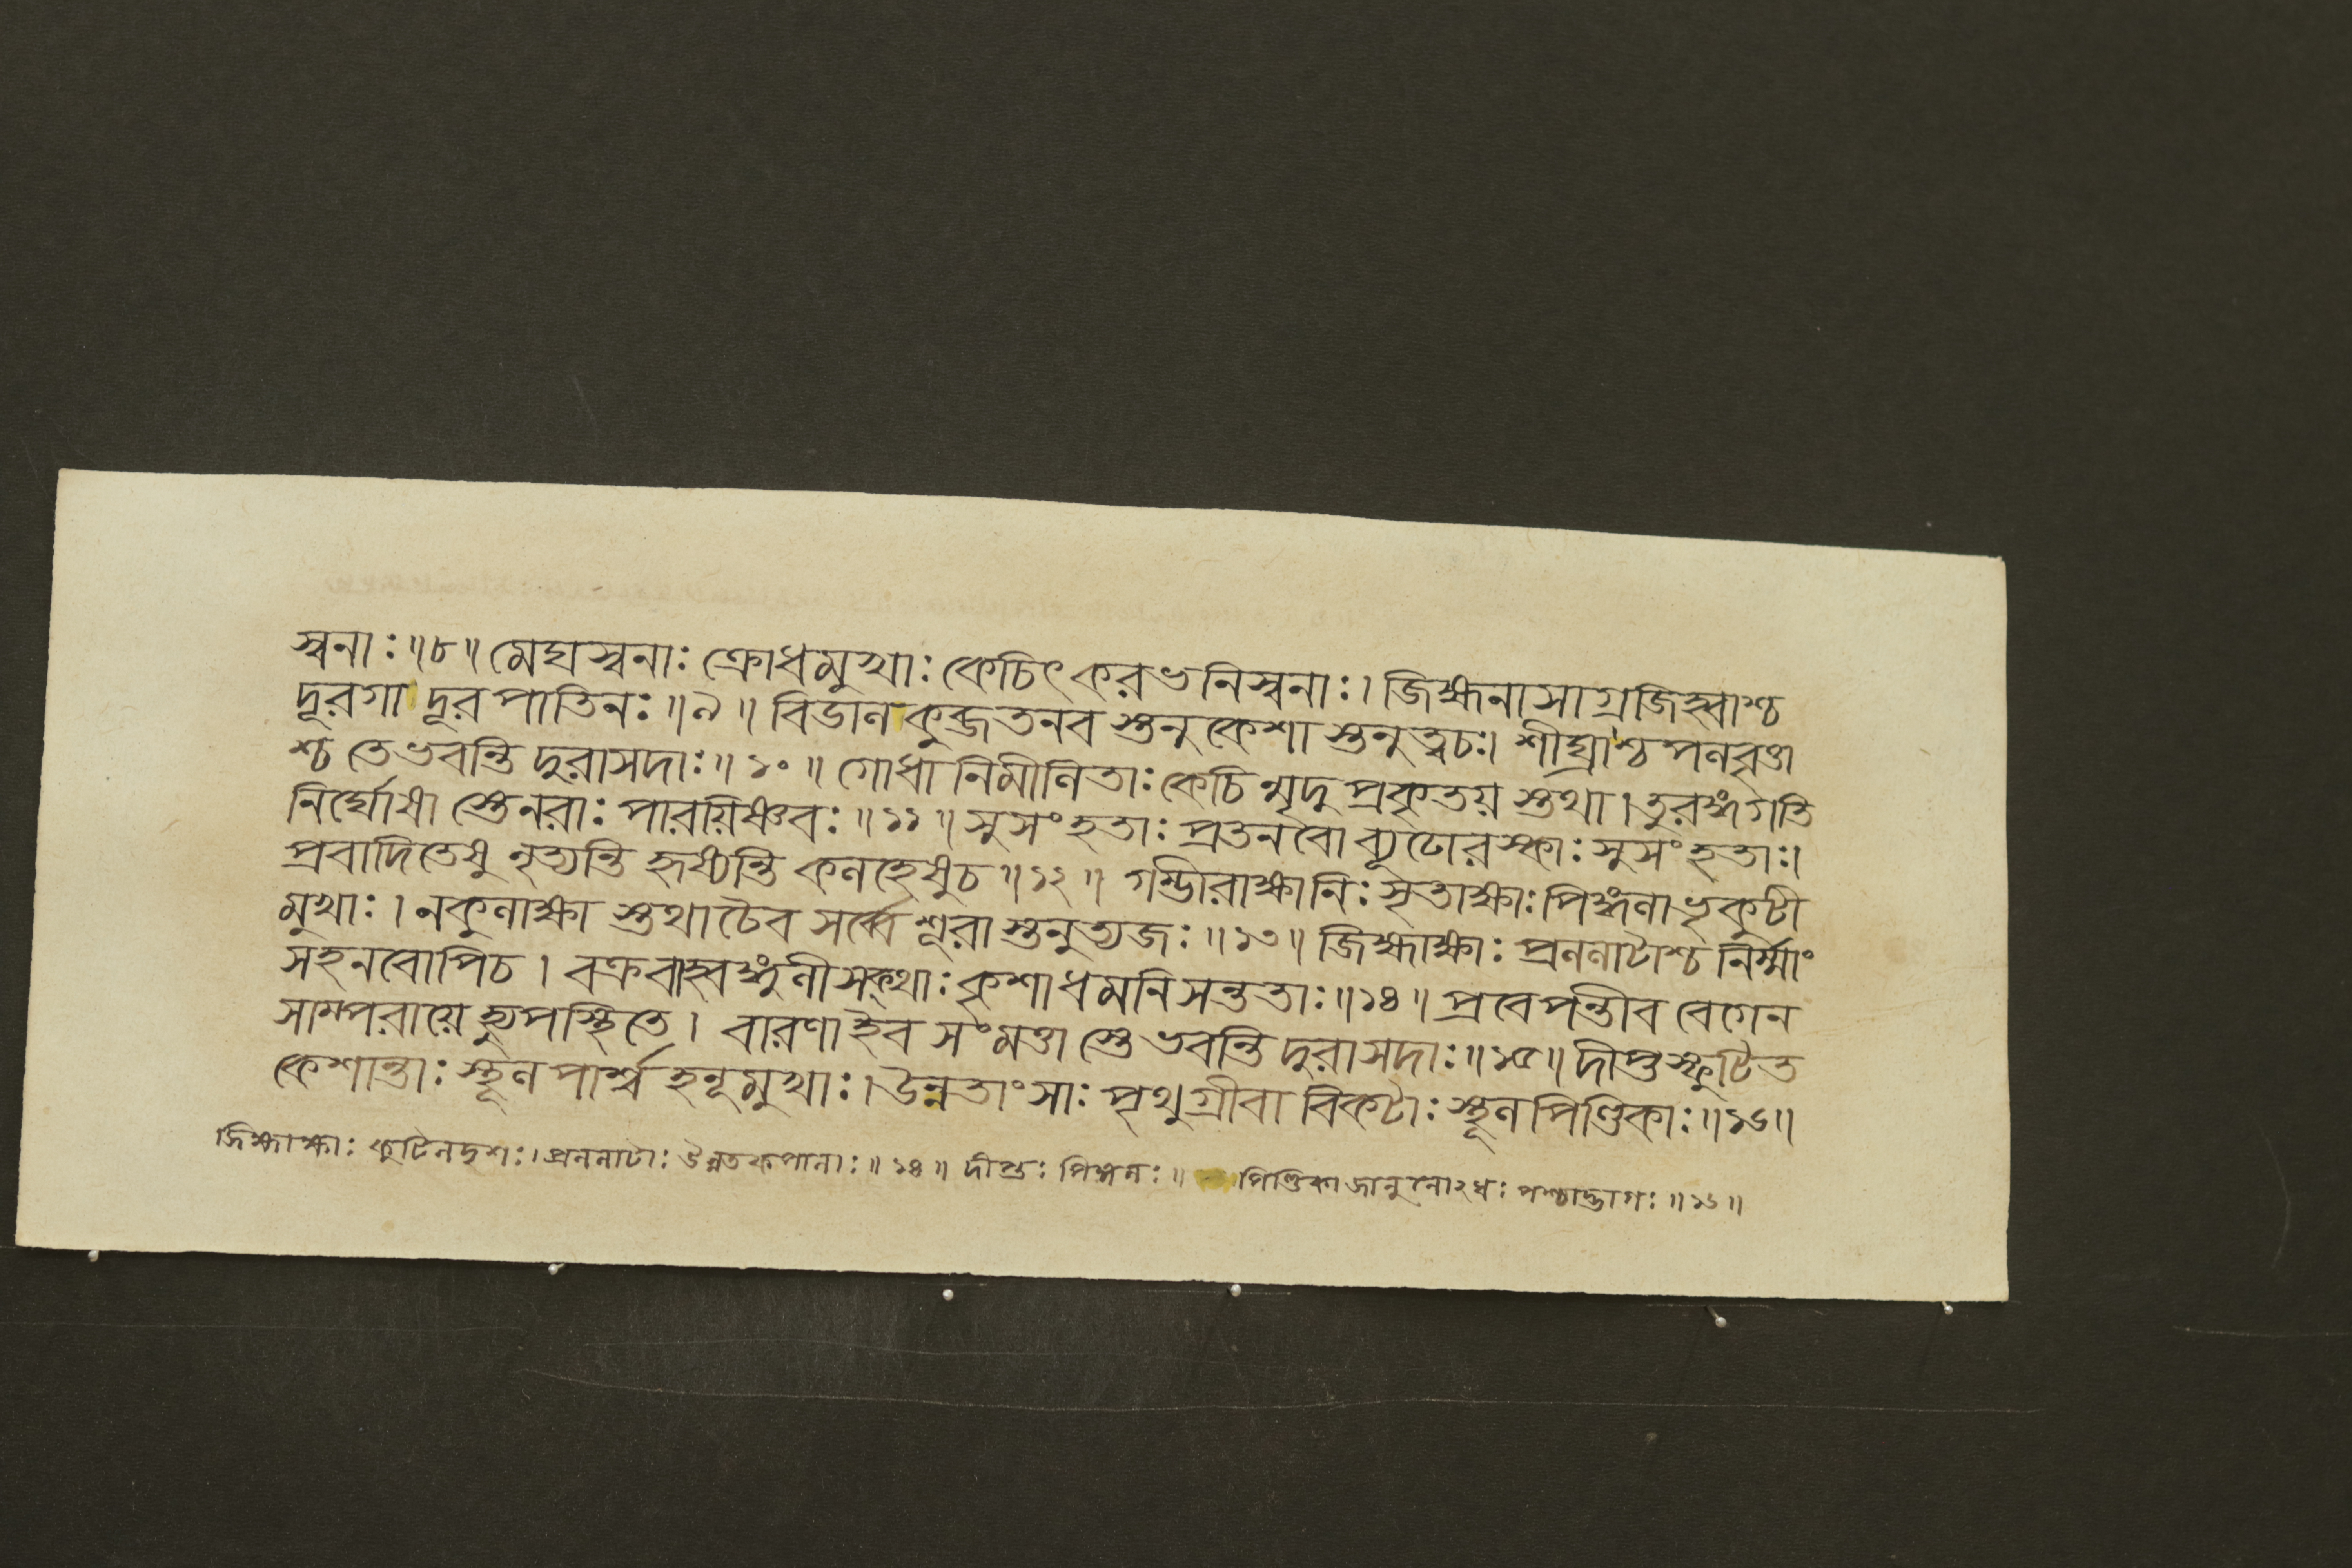 স্বনাঃ॥৮॥ মেঘস্বনাঃ ক্রোধমুখাঃ কেচিৎ করভনিস্বনাঃ। জিহ্মনাসাগ্রজিহ্বাশ্চ
দূরগা দূরপাতিনঃ॥৯॥ বিডালকুব্জতনব স্তনুকেশা স্তনুত্বচঃ। শীঘ্রাশ্চপলবৃত্তা
শ্চ তেভবন্তি দুরাসদাঃ॥১০॥ গোধা নিমীলিতাঃ কেচি ন্মৃদুপ্রকৃতয় স্তথা। তুরঙ্গগতি
নির্ঘোষা স্তেনরাঃ পারয়িষ্ণবঃ॥১১॥ সুসংহতাঃ প্রতনবো ব্যূঢোরস্কাঃ সুসংহতাঃ।
প্রবাদিতেষু নৃত্যন্তি হৃষ্যন্তি কলহেষুচ॥১২॥ গম্ভীরাক্ষানিঃসৃতাক্ষাঃ পিঙ্গলাভৃকুটী
মুখাঃ। নকুলাক্ষা স্তথাচৈব সর্ব্বে শূরা স্তনুত্যজঃ॥১৩॥ জিহ্মাক্ষাঃ প্রললাটাশ্চ নির্ম্মাং
সহনবোপিচ। বক্রবাহ্বঙ্গুলীসক্থাঃ কৃশাধমনিসন্ততাঃ॥১৪॥ প্রবেপন্তীব বেগেন
সাম্পরায়ে হ্যুপস্থিতে। বারণাইব সংমত্তা স্তে ভবন্তি দুরাসদাঃ॥১৫॥ দীপ্তস্ফুটিত
কেশান্তাঃ স্থূলপার্শ্ব হনূমুখাঃ। উন্নতাংসাঃ পৃথুগ্রীবা বিকটাঃ স্থূলপিণ্ডিকাঃ॥১৬॥
জিহ্মাক্ষাঃ কুটিলদৃশঃ। প্রললাটাঃ উন্নতকপালাঃ॥১৪॥ দীপ্তঃ পিঙ্গলঃ॥ পিণ্ডিকা জানুনোঽধঃ পশ্চাদ্ভাগঃ॥১৬॥